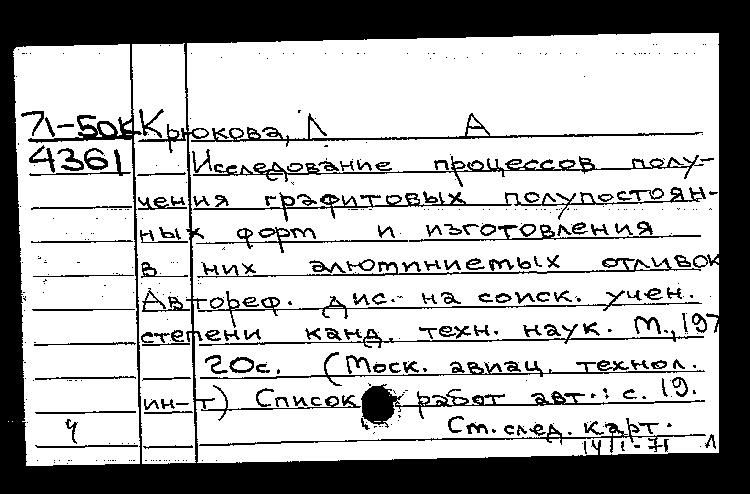 71-50к Крюкова, Л А
4361 Исследование процессов полу-
чения графитовых полупостоян-
ных форм и изготовления
в них алюминиемых отливок
Автореф. дис. на соиск. учен.
степени канд. техн. наук. М., 197
20с. (Моск. авиац. технол.
ин-т) Список работ авт.: с. 19.
ч См. след. карт.
14/I-71